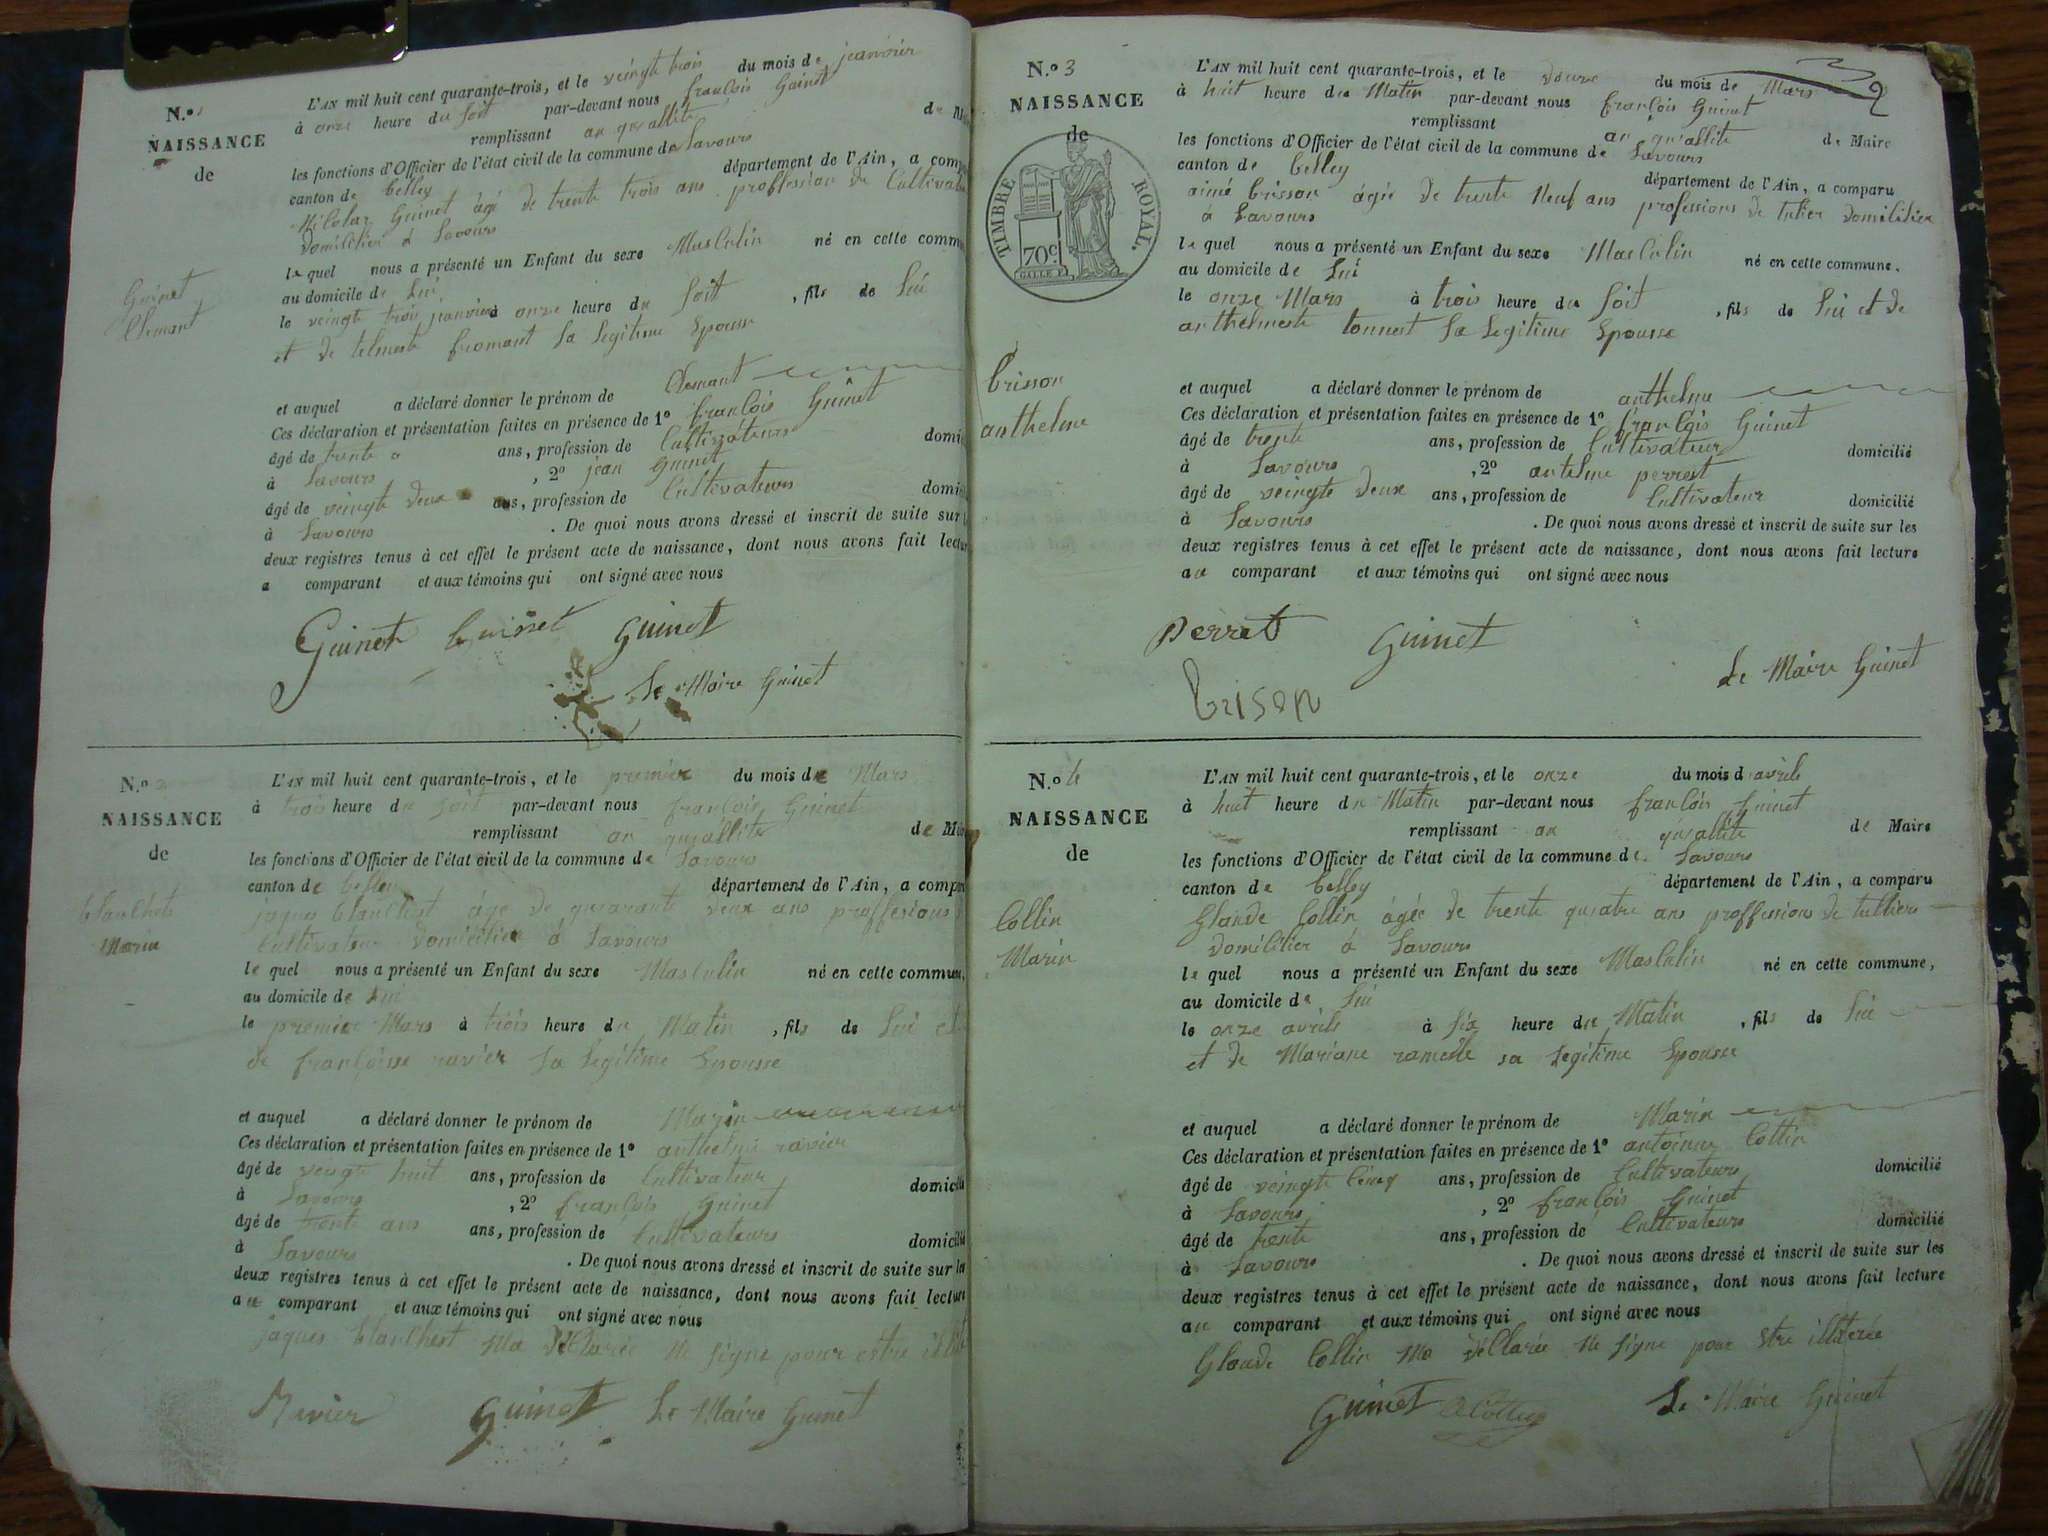 N.o 1
NAISSANCE
de
Guinet
Clemant
L'AN mil huit cent quarante-trois, et le veingte trois du mois de jeanvier
à onze heure du soit par-devant nous françois Guinet
remplissant an quallité de
les fonctions d'Officier de l'état civil de la commune de Savours
canton de belley département de l'Ain, a comp
Nicolas Guinet âgé de trente trois ans proffession de Cultivat
domicilier à Savours
le quel nous a présenté un Enfant du sexe Masculin né en cette comm
au domicile de Lui
le veingte trois jeanvier à onze heure du soit , fils de Lui
et de fromant sa Legitime Epousse
et auquel a déclaré donner le prénom de Clemant
Ces déclaration et présentation faites en présence de 1o françois Guinet
âgé de trente ans, profession de Cultivateurs domi
à Savours , 2o jean Guinet
âgé de veingte deux ans, profession de Cultivateurs domi
à Savours . De quoi nous avons dressé et inscrit de suite sur
deux registres tenus à cet effet le présent acte de naissance, dont nous avons fait lectur
a comparant et aux témoins qui ont signé avec nous
Guinet Guinet
Le Maire Guinet
N.o 2
NAISSANCE
de
blanchet
Marin
L'AN mil huit cent quarante-trois, et le premier du mois de Mars
à trois heure du soit par-devant nous françois Guinet
remplissant an quallité de Mair
les fonctions d'Officier de l'état civil de la commune de Savours
canton de belley département de l'Ain, a compar
jaques blanchet âgé de quarante deux ans proffesions
Cultivateur domicilier à Savours
le quel nous a présenté un Enfant du sexe Masculin né en cette commune,
au domicile de Lui
le premier Mars à trois heure du Matin , fils de Lui et
de françoisse ravier sa Legitime Epousse
et auquel a déclaré donner le prénom de Marin
Ces déclaration et présentation faites en présence de 1o anthelme ravier
âgé de veingte huit ans, profession de Cultivateur domicilié
à Savours , 2o françois Guinet
âgé de trente ans ans, profession de Cultivateurs domicilié
à Savours . De quoi nous avons dressé et inscrit de suite sur les
deux registres tenus à cet effet le présent acte de naissance, dont nous avons fait lecture
au comparant et aux témoins qui ont signé avec nous
jaques blanchet Ma déclarée Ne signé pour estre
Guinet Le Maire Guinet
N.o 3
NAISSANCE
de
TIMBRE ROYAL.
70c
brisson
anthelme
L'AN mil huit cent quarante-trois, et le douze du mois de Mars
à huit heure du Matin par-devant nous françois Guinet
remplissant an quallité de Maire
les fonctions d'Officier de l'état civil de la commune de Savours
canton de belley département de l'Ain, a comparu
aimé brisson âgée de trente Neuf ans professions de tulier domicilier
à Savours
le quel nous a présenté un Enfant du sexe Masculin né en cette commune.
au domicile de Lui
le onze Mars à trois heure du soit , fils de Lui et de
sa Legitime Epousse
et auquel a déclaré donner le prénom de anthelme
Ces déclaration et présentation faites en présence de 1o françois Guinet
âgé de trente ans, profession de Cultivateur domicilié
à Savours , 2o antelme perret
âgé de veingte deux ans, profession de Cultivateur domicilié
à Savours . De quoi nous avons dressé et inscrit de suite sur les
deux registres tenus à cet effet le présent acte de naissance, dont nous avons fait lecture
au comparant et aux témoins qui ont signé avec nous
Perret Guinet
Le Maire Guinet
brison
N.o 4
NAISSANCE
de
Collin
Marin
L'AN mil huit cent quarante-trois, et le onze du mois d avrils
à huit heure du Matin par-devant nous françois Guinet
remplissant an quallité de Maire
les fonctions d'Officier de l'état civil de la commune de Savours
canton de belley département de l'Ain, a comparu
Glaude Collin âgée de trente quatre ans proffession de tullier
domicilier à Savours
le quel nous a présenté un Enfant du sexe Masculin né en cette commune,
au domicile de Lui
le onze avrils à six heure du Matin , fils de Lui
et de Mariane ramelle sa Legitime Epousse
et auquel a déclaré donner le prénom de Marin
Ces déclaration et présentation faites en présence de 1o antoinne Collin
âgé de veingte Cinq ans, profession de Cultivateurs domicilié
à Savours , 2o françois Guinet
âgé de trente ans, profession de Cultivateurs domicilié
à Savours . De quoi nous avons dressé et inscrit de suite sur les
deux registres tenus à cet effet le présent acte de naissance, dont nous avons fait lecture
au comparant et aux témoins qui ont signé avec nous
Glaude Collin Ma déClarée Ne signe pour Etre illiterée
Guinet Le Maire Guinet